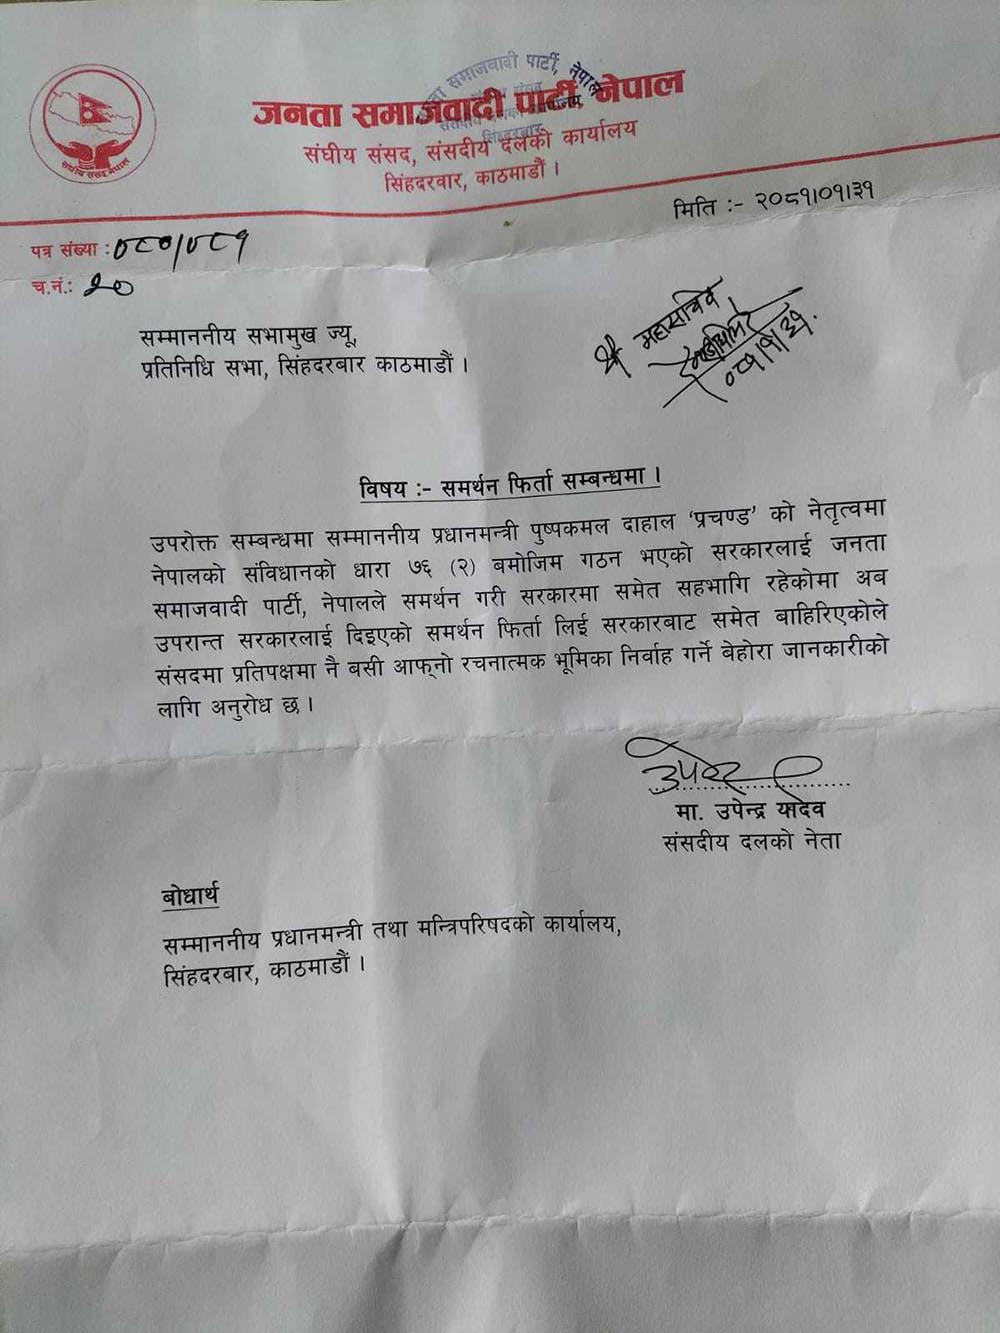 जनता समाजवादी पार्टी, नेपाल
संघीय संसद, संसदीय दलको कार्यालय
सिंहदरवार, काठमाडौं ।
समाजवादी पार्टी, नेपाल
सिंहदरवार
संघीय संसद नेपाल
मिति :- २०८१।०१।३१
पत्र संख्या : ०८०/०८१
च.नं.: २०
श्री महासचिव
०८१।१।३१.
सम्माननीय सभामुख ज्यू,
प्रतिनिधि सभा, सिंहदरबार काठमाडौं ।
विषय :- समर्थन फिर्ता सम्बन्धमा ।
उपरोक्त सम्बन्धमा सम्माननीय प्रधानमन्त्री पुष्पकमल दाहाल ‘प्रचण्ड’ को नेतृत्वमा
नेपालको संविधानको धारा ७६ (२) बमोजिम गठन भएको सरकारलाई जनता
समाजवादी पार्टी, नेपालले समर्थन गरी सरकारमा समेत सहभागि रहेकोमा अब
उपरान्त सरकारलाई दिइएको समर्थन फिर्ता लिई सरकारबाट समेत बाहिरिएकोले
संसदमा प्रतिपक्षमा नै बसी आफ्‌नो रचनात्मक भूमिका निर्वाह गर्ने बेहोरा जानकारीको
लागि अनुरोध छ ।
मा. उपेन्द्र यादव
संसदीय दलको नेता
बोधार्थ
सम्माननीय प्रधानमन्त्री तथा मन्त्रिपरिषदको कार्यालय,
सिंहदरबार, काठमाडौं ।